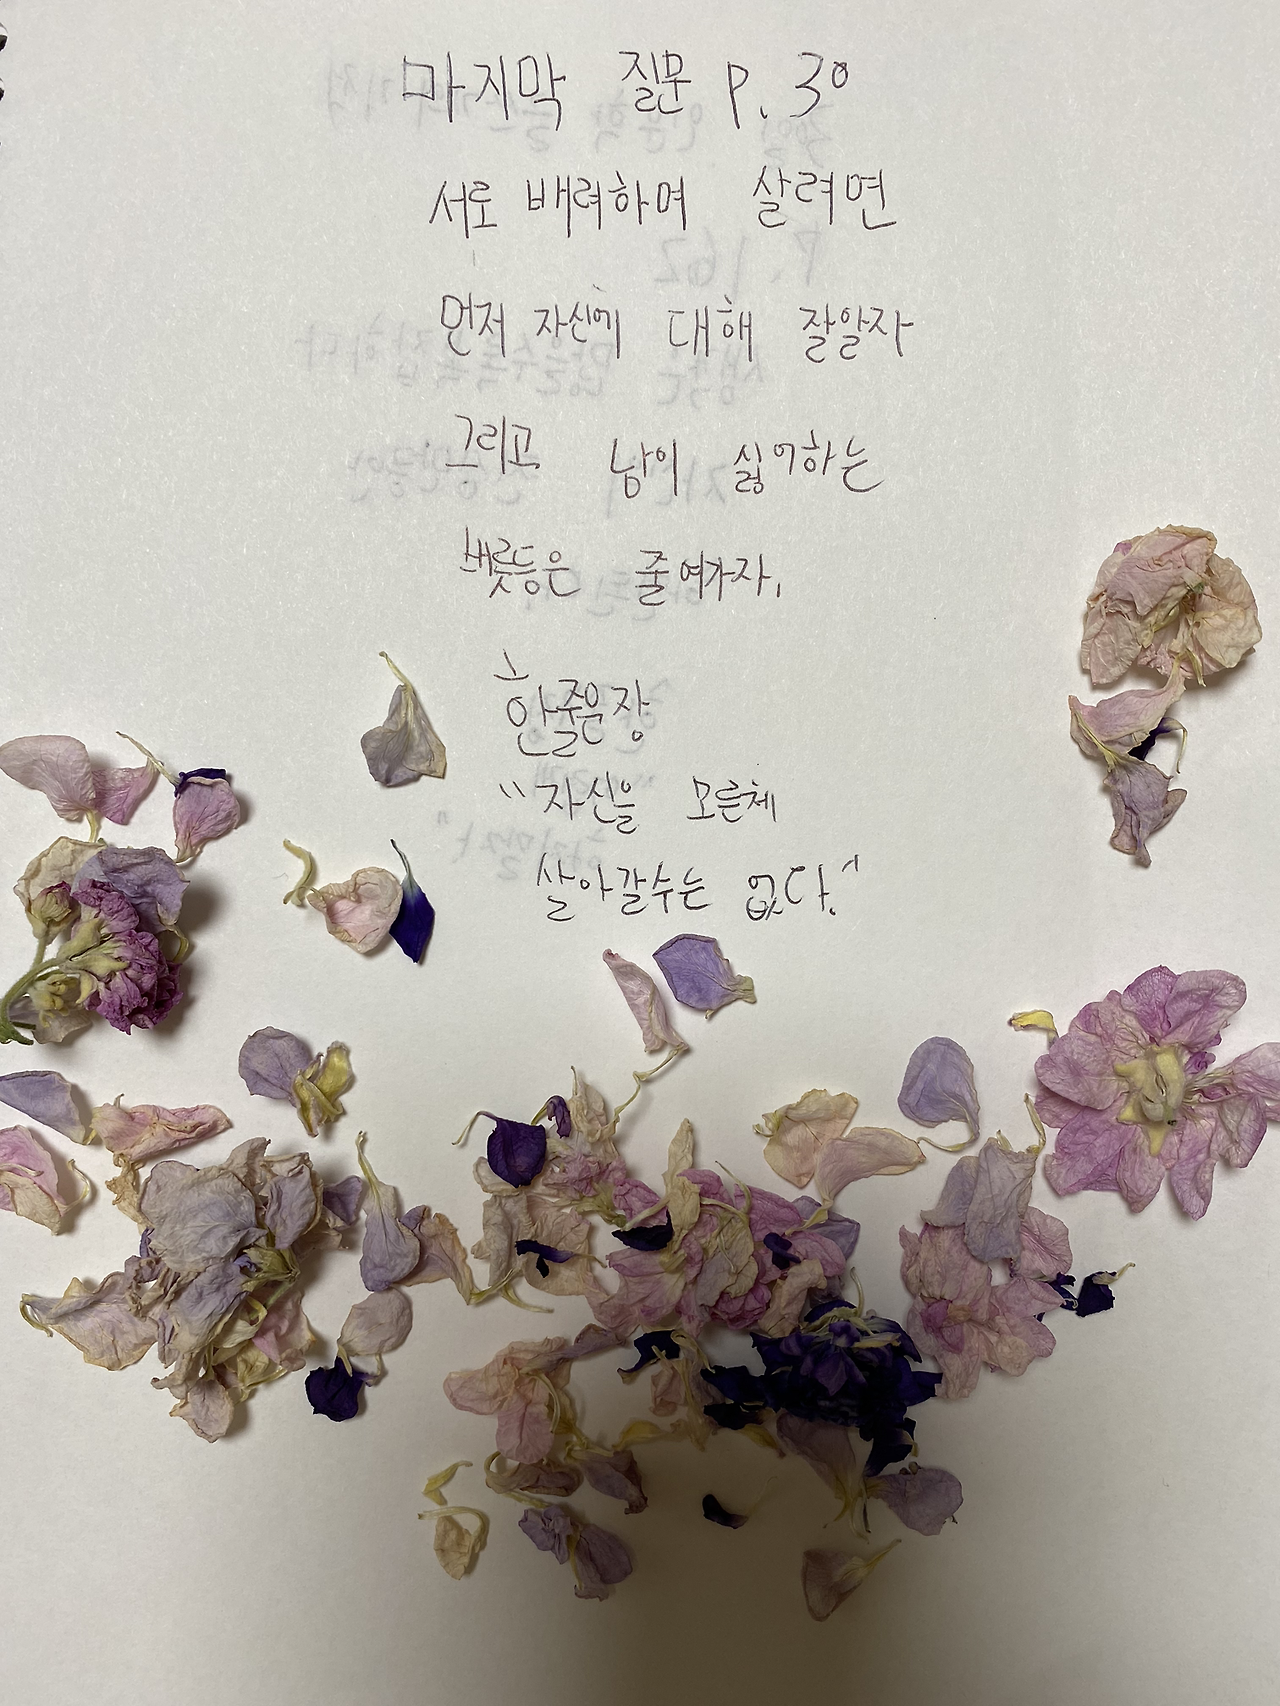 마지막 질문 P. 30
서로 배려하며 살려면
먼저 자신에 대해 잘알자
그리고 남이 싫어하는
버릇등은 줄여가자.
한줄문장
"자신을 모른체
살아갈수는 없다."